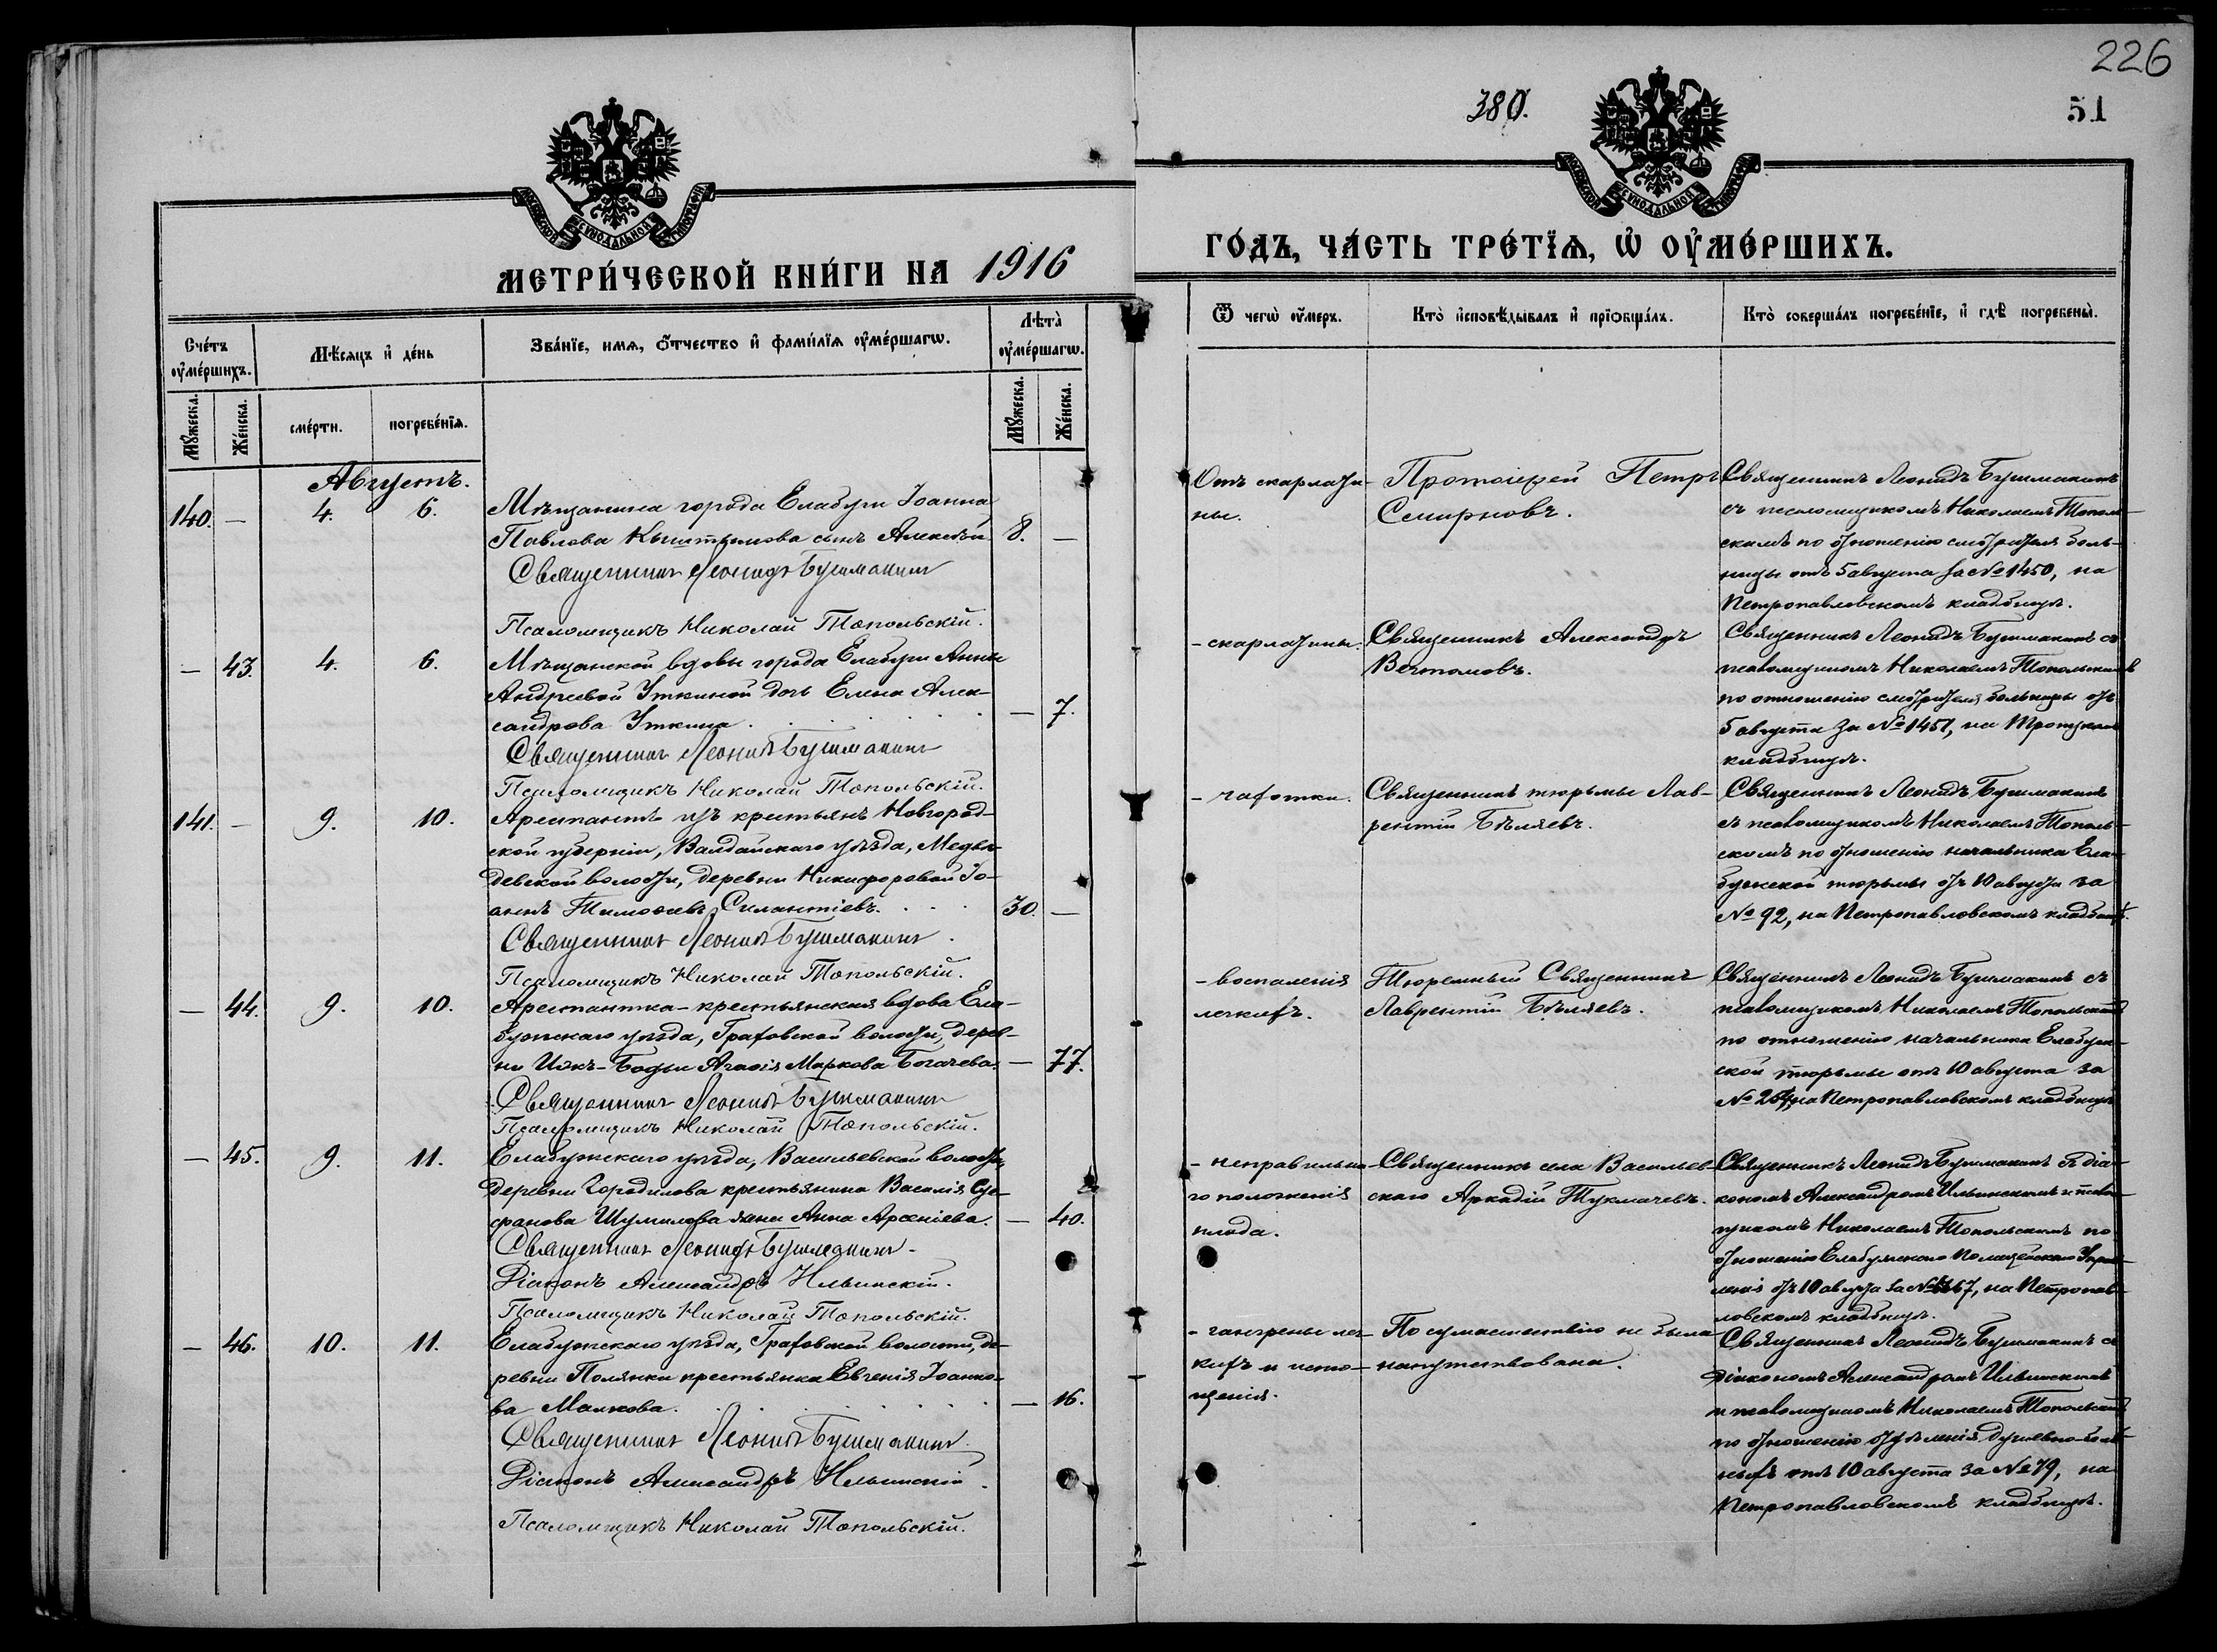 226
380.
51
МЕТРИ́ЧЕСКОЙ КНИ́ГИ НА 1916
ГО́ДЪ, ЧА́СТЬ ТРЕ́ТЇѦ, Ѡ҆ ОУ҆МЕ́РШИХЪ.
Сче́тъ оу҆ме́ршихъ.
Мѣ́сяцъ и҆ де́нь
Зва́нїе, имѧ, ѻ҆́тчество и҆ фами́лїѧ оу҆ме́ршагѡ.
Лѣта̀ оу҆ме́ршагѡ.
Мꙋ́жеска.
Же́нска.
сме́рти.
погребе́нїѧ.
Мꙋ́жеска.
Же́нска.
Ѿ чегѡ̀ оу҆́меръ.
Кто̀ и҆сповѣ́дывалъ и҆ прїѡбща́лъ.
Кто̀ соверша́лъ погребе́нїе, и҆ гдѣ̀ погребены̀.
Августъ.
140. — 4. 6.
Мѣщанина города Елабуги Іоанна
Павлова Кыштымова сынъ Алексѣй 8. —
Священникъ Леонидъ Бушмакинъ
Псаломщикъ Николай Топольскій.
Отъ скарлати-
ны.
Протоіерей Петръ
Смирновъ.
Священникъ Леонидъ Бушмакинъ
съ псаломщикомъ Николаемъ Тополь-
скимъ по отношенію смотрителя боль-
ницы отъ 5 августа за № 1450, на
Петропавловскомъ кладбищѣ.
— 43. 4. 6.
Мѣщанской вдовы города Елабуги Анны
Андреевой Уткиной дочь Елена Алек-
сандрова Уткина. — 7.
Священникъ Леонидъ Бушмакинъ
Псаломщикъ Николай Топольскій.
- скарлатины.
Священникъ Александръ
Вечтомовъ.
Священникъ Леонидъ Бушмакинъ съ
псаломщикомъ Николаемъ Топольскимъ
по отношенію смотрителя больницы отъ
5 августа за № 1451, на Троицкомъ
кладбищѣ.
141. — 9. 10.
Арестантъ изъ крестьянъ Новгород-
ской губерніи, Валдайскаго уѣзда, Медвѣ-
девской волости, деревни Никифоровой Іо-
аннъ Тимоѳеевъ Силантіевъ. 30. —
Священникъ Леонидъ Бушмакинъ
Псаломщикъ Николай Топольскій.
- чахотки.
Священникъ тюрьмы Лав-
рентій Бѣляевъ.
Священникъ Леонидъ Бушмакинъ
съ псаломщикомъ Николаемъ Тополь-
скимъ по отношенію начальника Ела-
бужской тюрьмы отъ 10 августа за
№ 92, на Петропавловскомъ кладбищѣ.
— 44. 9. 10.
Арестантка - крестьянская вдова Ела-
бужскаго уѣзда, Граховской волости, дерев-
ни Ижъ-Бодьи Агаѳія Маркова Богачева. — 77.
Священникъ Леонидъ Бушмакинъ
Псаломщикъ Николай Топольскій.
- воспаленія
легкихъ.
Тюремный Священникъ
Лаврентій Бѣляевъ.
Священникъ Леонидъ Бушмакинъ съ
псаломщикомъ Николаемъ Топольскимъ
по отношенію начальника Елабуж-
ской тюрьмы отъ 10 августа за
на Петропавловскомъ кладбищѣ
— 45. 9. 11.
Елабужскаго уѣзда, Васильевской волости,
деревни Городилова крестьянина Василія Сте-
фанова Шумилова жена Анна Арсеніева. — 40.
Священникъ Леонидъ Бушмакинъ
Діаконъ Александръ Ильинскій.
Псаломщикъ Николай Топольскій.
- неправильна-
го положенія
плода.
Священникъ села Васильев-
скаго Аркадій Тукмачевъ.
Священникъ Леонидъ Бушмакинъ съ діа-
кономъ Александромъ Ильинскимъ и псалом-
щикомъ Николаемъ Топольскимъ по
отношенію Елабужскаго Полицейскаго Управ-
ленія отъ 10 августа за на Петропав-
ловскомъ кладбищѣ.
— 46. 10. 11.
Елабужскаго уѣзда, Граховской волости, де-
ревни Полянки крестьянка Евгенія Іоанно-
ва Малкова. — 16.
Священникъ Леонидъ Бушмакинъ
Діаконъ Александръ Ильинскій.
Псаломщикъ Николай Топольскій.
- гангрены лег-
кихъ и исто-
щенія.
По сумасшествію не была
напутствована.
Священникъ Леонидъ Бушмакинъ съ
діакономъ Александромъ Ильинскимъ
и псаломщикомъ Николаемъ Топольскимъ
по отношенію отдѣленія душевно-боль-
ныхъ отъ 10 августа за № 79, на
Петропавловскомъ кладбищѣ.